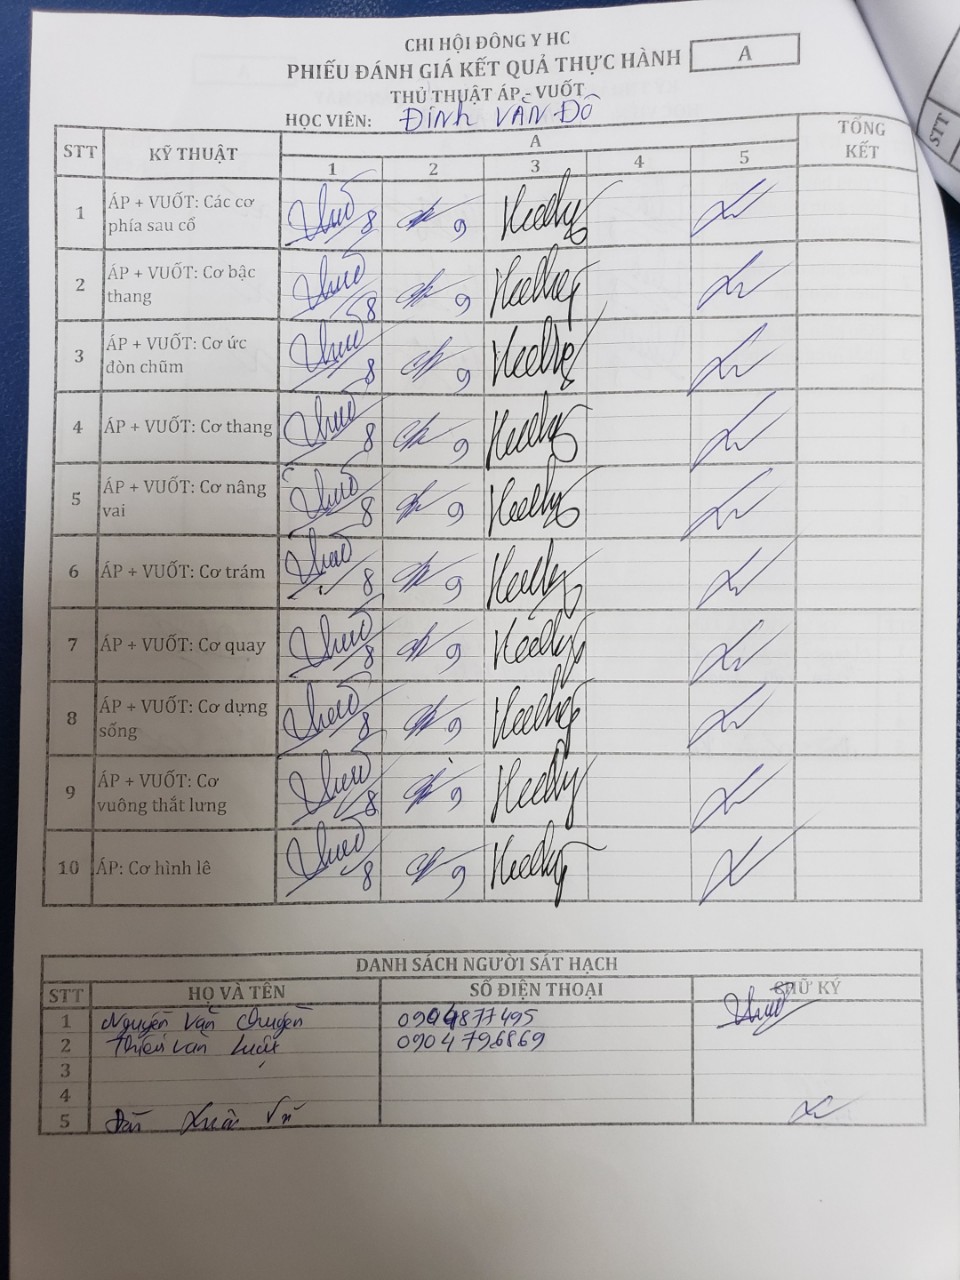 CHI HỘI ĐÔNG Y HC
PHIẾU ĐÁNH GIÁ KẾT QUẢ THỰC HÀNH
A
THỦ THUẬT ÁP - VUỐT
HỌC VIÊN: ĐINH VĂN ĐÔ
STT KỸ THUẬT A TỔNG KẾT
1 2 3 4 5
1 ÁP + VUỐT: Các cơ phía sau cổ 8 9
2 ÁP + VUỐT: Cơ bậc thang 8 9
3 ÁP + VUỐT: Cơ ức đòn chũm 8 9
4 ÁP + VUỐT: Cơ thang 8 9
5 ÁP + VUỐT: Cơ nâng vai 8 9
6 ÁP + VUỐT: Cơ trám 8 9
7 ÁP + VUỐT: Cơ quay 8 9
8 ÁP + VUỐT: Cơ dựng sống 8 9
9 ÁP + VUỐT: Cơ vuông thắt lưng 8 9
10 ÁP: Cơ hình lê 8 9
DANH SÁCH NGƯỜI SÁT HẠCH
STT HỌ VÀ TÊN SỐ ĐIỆN THOẠI CHỮ KÝ
1 Nguyễn Văn Chuyền 0904877495
2 Thiều Văn Luật 0904796869
3
4
5
STT